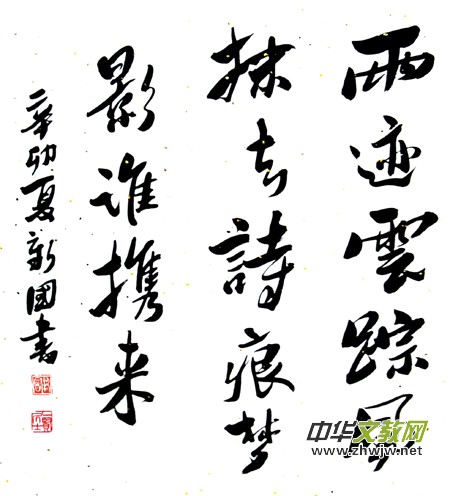 雨迹雲踪風
抹去詩痕梦
影谁携来
辛卯夏新國書
中华文教网
www.zhwjw.net